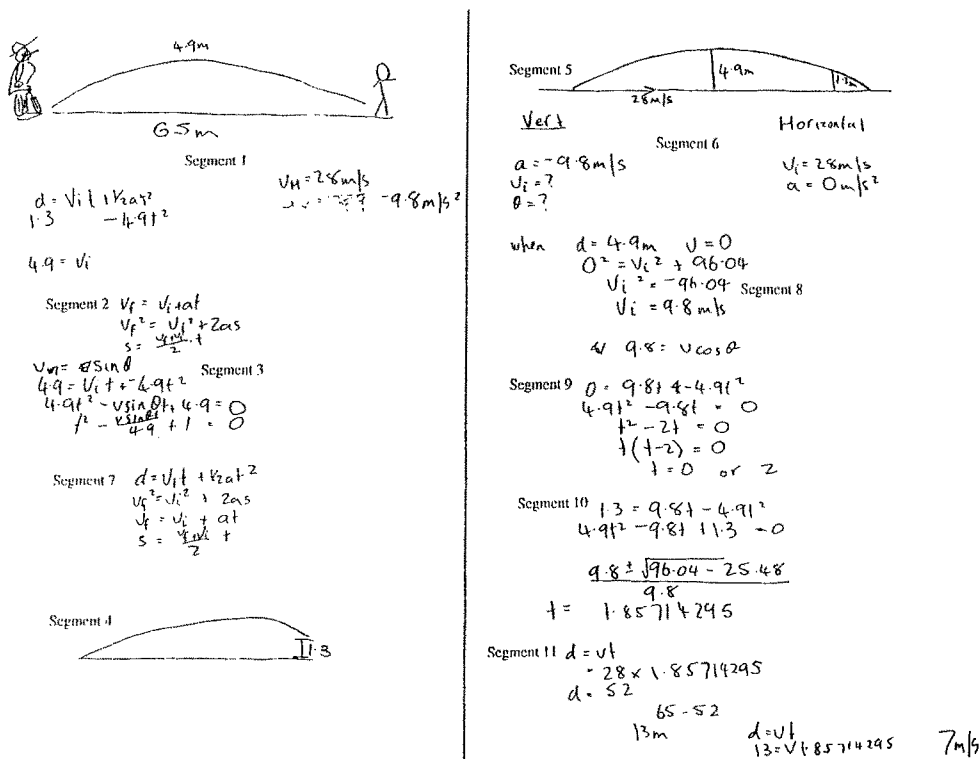 4.9m
65m
Segment 1
d = Vit + 1/2at²
1.3 -4.9t²
VH = 28m/s
-9.8m/s²
4.9 = Vi
Segment 2 Vf = Vi + at
Vf² = Vi² + 2as
s = (Vf+Vi)/2 . t
= vsinθ Segment 3
4.9 = Vit + -4.9t²
4.9t² - vsinθt + 4.9 = 0
t² - vsinθt/4.9 + 1 = 0
Segment 7 d = Vit + 1/2at²
Vf² = Vi² + 2as
Vf = Vi + at
s = (Vf+Vi)/2 t
Segment 4
1.3
Segment 5
4.9m
1.3m
28m/s
Vert Horizontal
Segment 6
a = -9.8m/s
Vi = ?
θ = ?
Vi = 28m/s
a = 0m/s²
when d = 4.9m V = 0
0² = Vi² + 96.04
Vi² = -96.04 Segment 8
Vi = 9.8m/s
9.8 = vcosθ
Segment 9 0 = 9.8t + -4.9t²
4.9t² - 9.8t = 0
t² - 2t = 0
t(t-2) = 0
t = 0 or 2
Segment 10 1.3 = 9.8t - 4.9t²
4.9t² - 9.8t + 1.3 = 0
9.8 ± √96.04 - 25.48
9.8
t = 1.85714295
Segment 11 d = vt
= 28 × 1.85714295
d = 52
65 - 52
13m
d = vt
13 = Vt85714295 7m/s